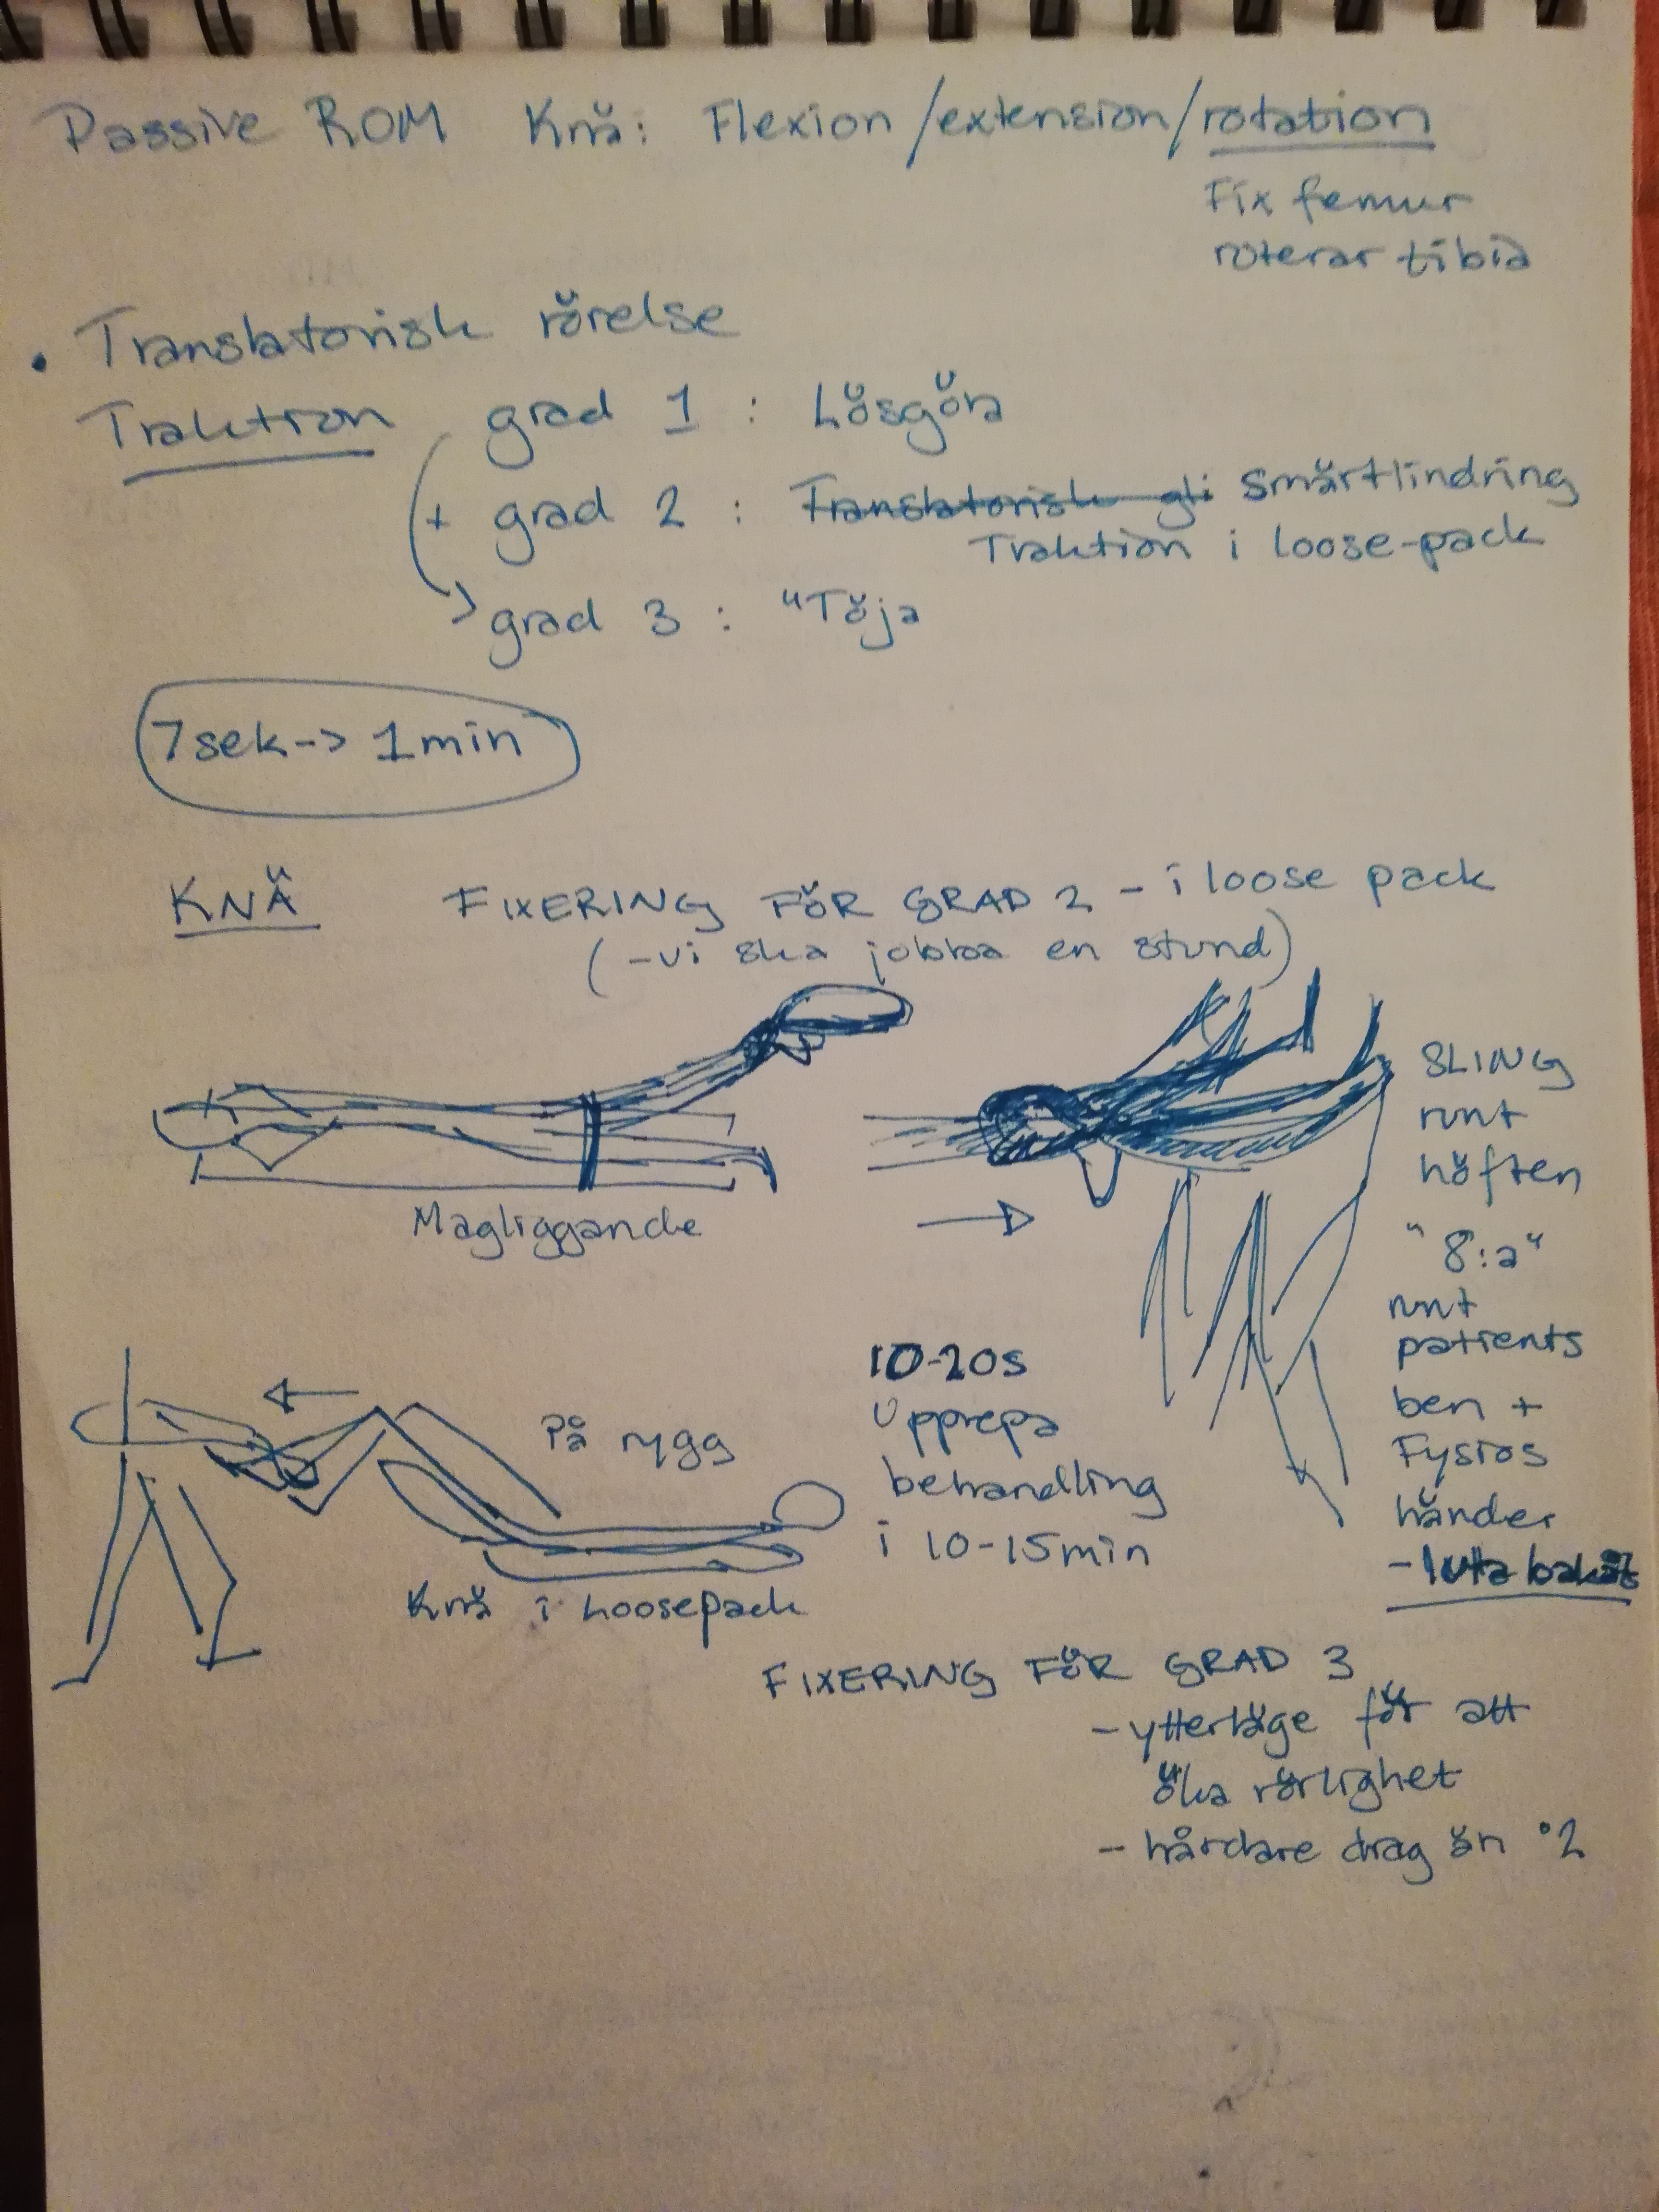 Passive ROM Knä: Flexion/extension/rotation
Fix femur
roterar tibia
• Translatorisk rörelse
Traktion grad 1 : Lösgöra
+ grad 2 : Translatorisk gli Smärtlindring
Traktion i loose-pack
grad 3 : "Töja
7sek-> 1min
KNÄ FIXERING FÖR GRAD 2 - i loose pack
(-vi ska jobba en stund)
Magliggande
SLING
runt
höften
"8:a"
runt
patients
ben +
Fysios
händer
-luta bakåt
På rygg
Knä i Loosepack
10-20s
Upprepa
behandling
i 10-15min
FIXERING FÖR GRAD 3
- ytterläge för att
öka rörlighet
- hårdare drag än °2